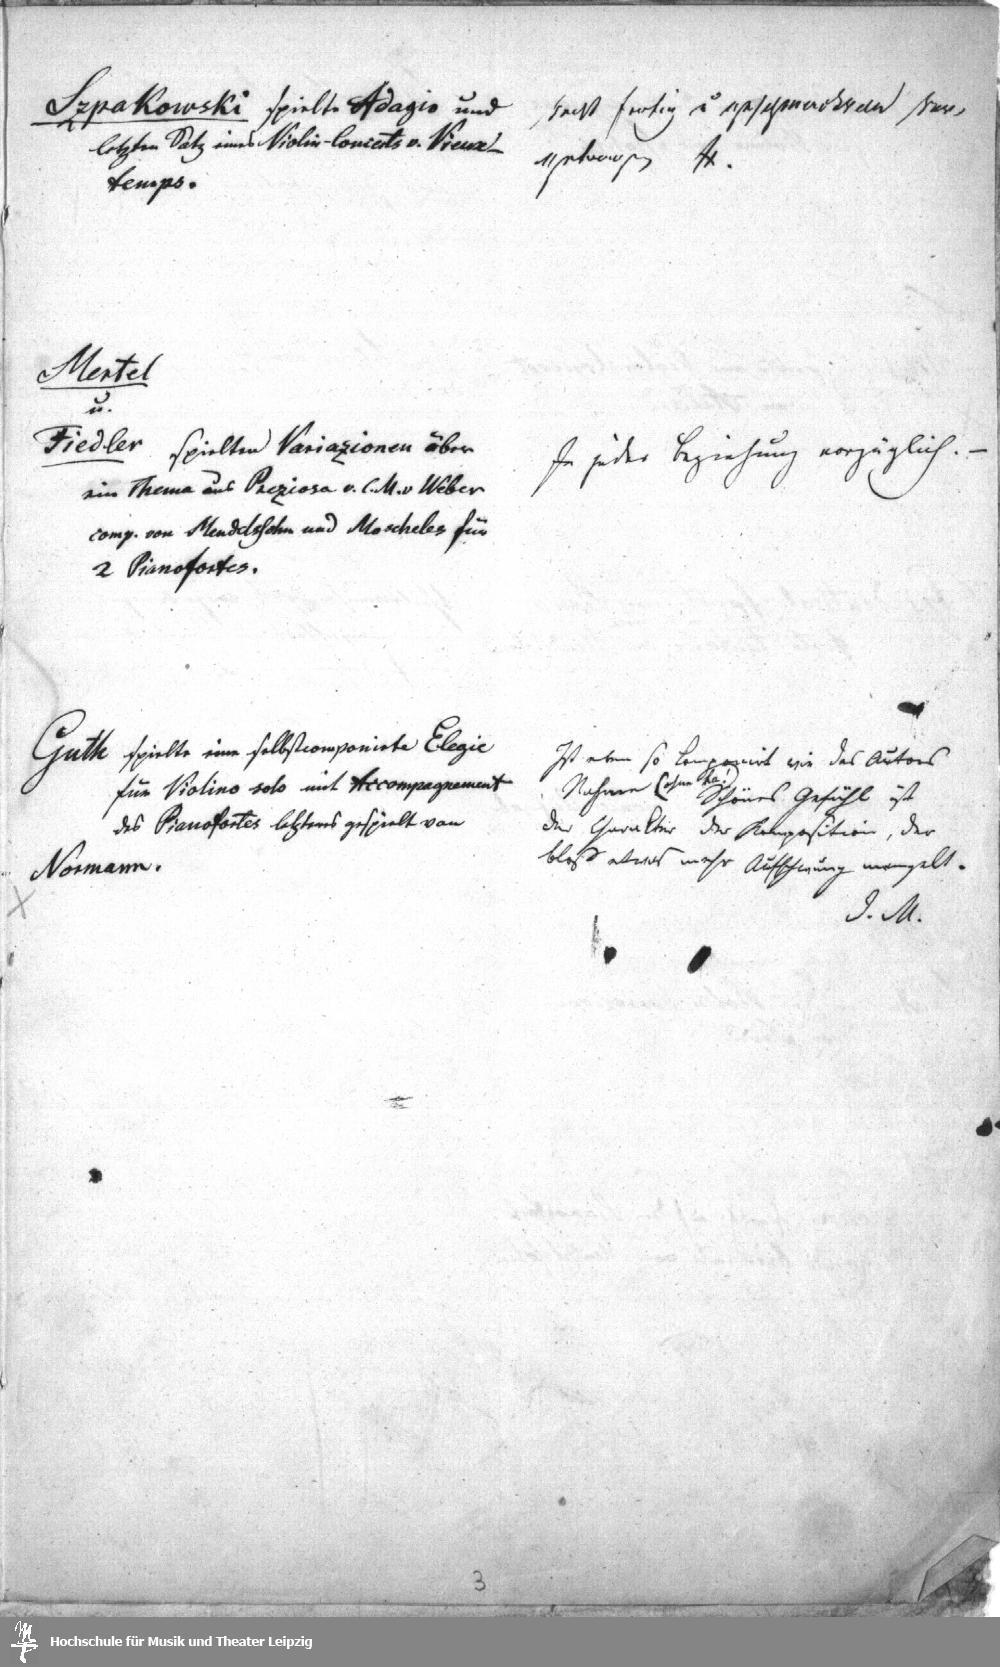 Szpakowski spielte Adagio und
letzten Satz eines Violin-Concerts v. Vieux-
temps.
recht fertig u geschmackvoll vor-
getragen
Mertel
u.
Fiedler spielten Variazionen über
ein Thema aus Preziosa v. C. M. v Weber
comp. von Mendelssohn und Moscheles für
2 Pianofortes.
In jeder Beziehung vorzüglich. –
Guth spielte eine selbstcomponirte Elegie
für Violino solo mit Accompagnement
des Pianofortes letzteres gespielt von
Normann.
Ist eben so componirt wie des Autors
Nahme (ohne ha!) Schönes Gefühl ist
der Charakter der Komposition, der
bloß etwas mehr Aufschwung mangelt.
I. M.
3
Hochschule für Musik und Theater Leipzig